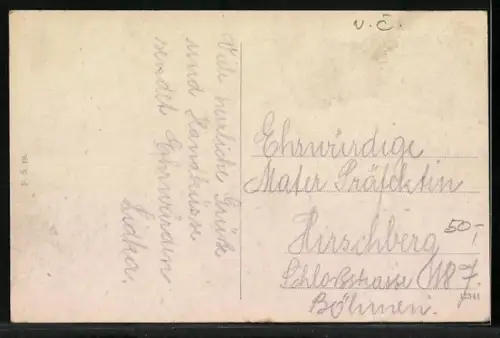 Viele herzliche Grüße
und Handküsse
sendet Ehrwürden
Lidka.
v.č.
Ehrwürdige
Mater Präfektin
Hirschberg
Schloßstrasse 118
Böhmen.
50,-
P. S. M.